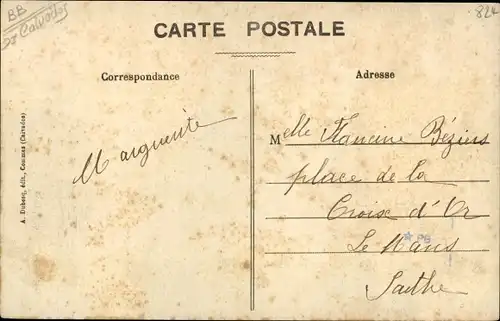 BB
Calvados
824
CARTE POSTALE
Correspondance
Adresse
Marguerite
Melle Francine Béziers
place de la
Croix d'Or
Le Mans
Sarthe
A. Dubosq, édit., Cesmes (Calvados)